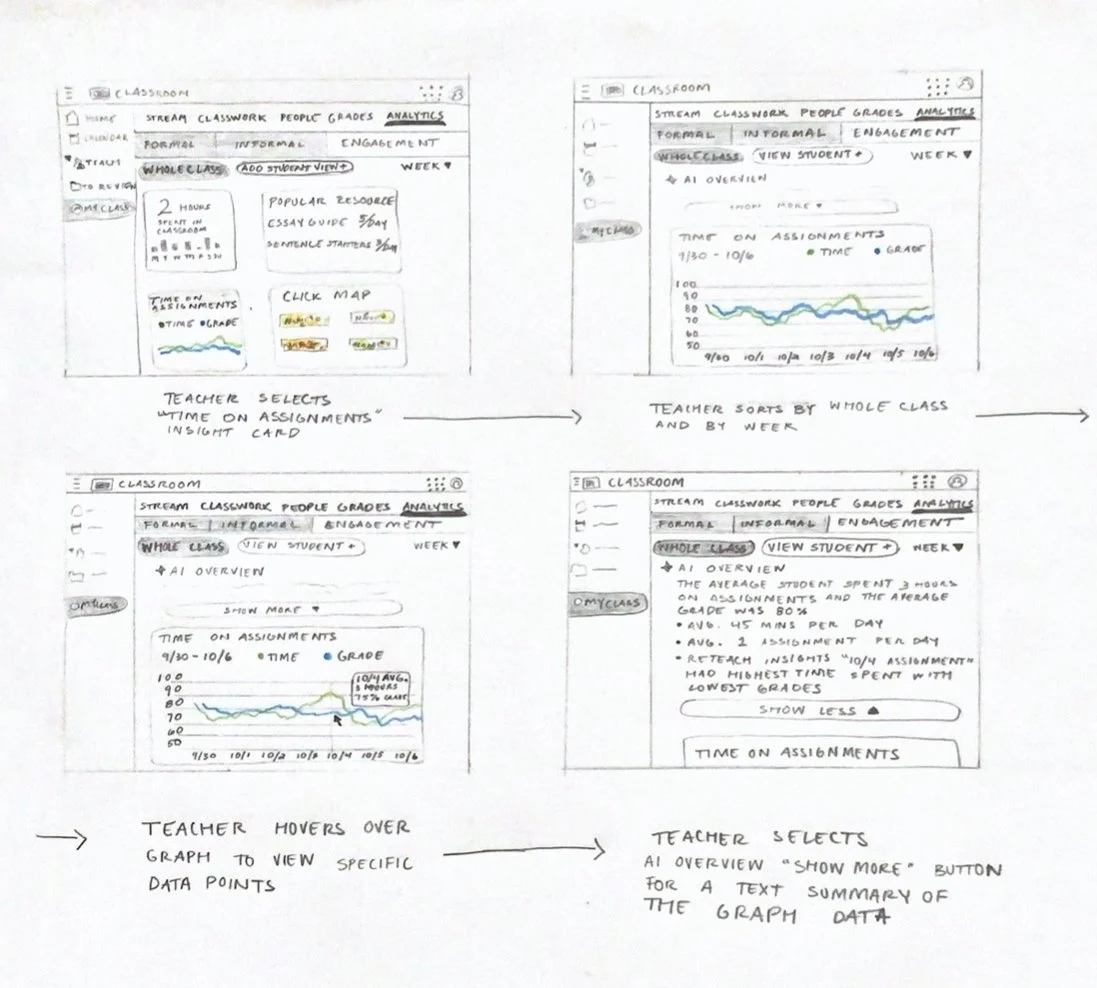 CLASSROOM
HOME
CALENDAR
TEACH
TO REVIEW
MY CLASS
STREAM CLASSWORK PEOPLE GRADES ANALYTICS
FORMAL INFORMAL ENGAGEMENT
WHOLE CLASS ADD STUDENT VIEW + WEEK ▼
2 HOURS
SPENT IN
CLASSROOM
M T W TH F S SU
POPULAR RESOURCE
ESSAY GUIDE 5/DAY
SENTENCE STARTERS 3/DAY
TIME ON
ASSIGNMENTS
TIME GRADE
CLICK MAP
TEACHER SELECTS
"TIME ON ASSIGNMENTS"
INSIGHT CARD
CLASSROOM
MY CLASS
STREAM CLASSWORK PEOPLE GRADES ANALYTICS
FORMAL INFORMAL ENGAGEMENT
WHOLE CLASS VIEW STUDENT + WEEK ▼
AI OVERVIEW
SHOW MORE ▼
TIME ON ASSIGNMENTS
9/30 - 10/6 TIME GRADE
100
90
80
70
60
50
9/30 10/1 10/2 10/3 10/4 10/5 10/6
TEACHER SORTS BY WHOLE CLASS
AND BY WEEK
CLASSROOM
MY CLASS
STREAM CLASSWORK PEOPLE GRADES ANALYTICS
FORMAL INFORMAL ENGAGEMENT
WHOLE CLASS VIEW STUDENT + WEEK ▼
AI OVERVIEW
SHOW MORE ▼
TIME ON ASSIGNMENTS
9/30 - 10/6 TIME GRADE
100
90
80
70
60
50
10/4 AVG.
3 HOURS
75% GRADE
9/30 10/1 10/2 10/3 10/4 10/5 10/6
TEACHER HOVERS OVER
GRAPH TO VIEW SPECIFIC
DATA POINTS
CLASSROOM
MY CLASS
STREAM CLASSWORK PEOPLE GRADES ANALYTICS
FORMAL INFORMAL ENGAGEMENT
WHOLE CLASS VIEW STUDENT + WEEK ▼
AI OVERVIEW
THE AVERAGE STUDENT SPENT 3 HOURS
ON ASSIGNMENTS AND THE AVERAGE
GRADE WAS 80%
• AVG. 45 MINS PER DAY
• AVG. 2 ASSIGNMENT PER DAY
• RETEACH INSIGHTS "10/4 ASSIGNMENT"
HAD HIGHEST TIME SPENT WITH
LOWEST GRADES
SHOW LESS ▲
TIME ON ASSIGNMENTS
TEACHER SELECTS
AI OVERVIEW "SHOW MORE" BUTTON
FOR A TEXT SUMMARY OF
THE GRAPH DATA